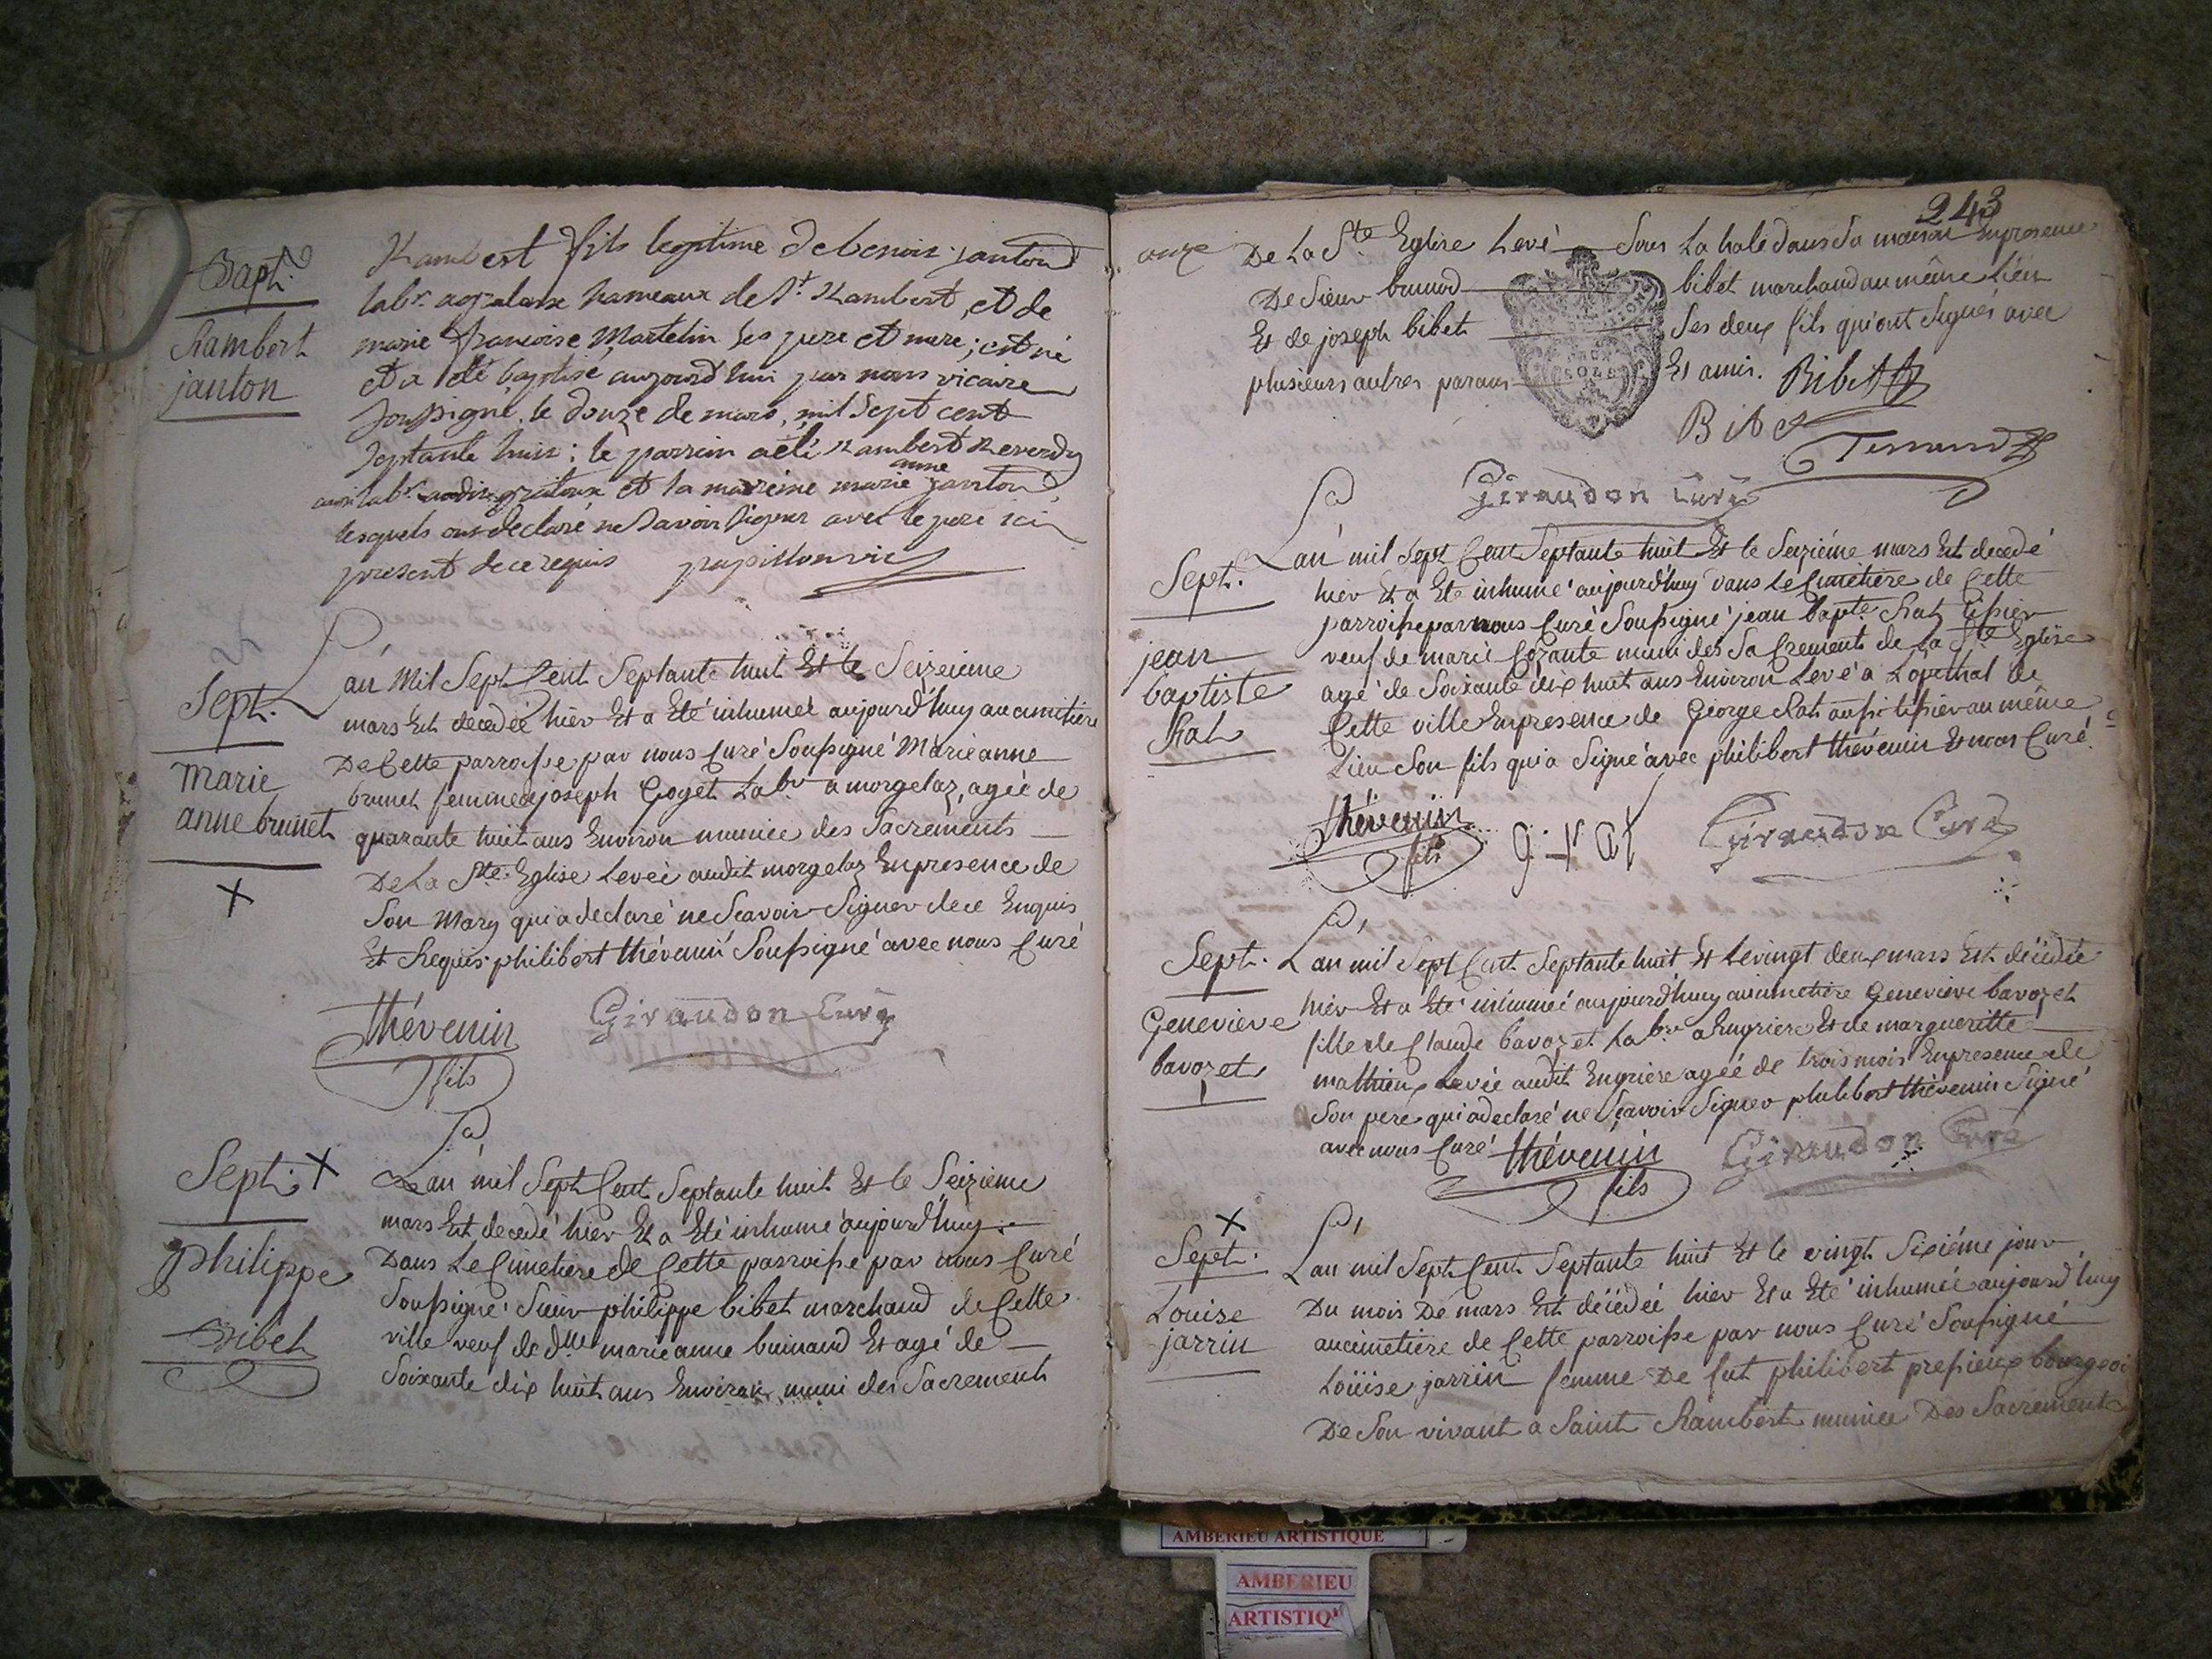 Bapt.
Rambert
janton
Rambert fils legitime de benoit janton
labr. a hameaux de St. Rambert, et de
marie francoise Martelin ses pere et mere; est né
et a eté baptisé aujourd'hui par nous vicaire
soussigné le douze de mars, mil sept cent
septante huit; le parrein a eté Rambert Reverdy
aussi labr. et la mareine marie anne janton
lesquels ont declaré ne savoir signer avec le pere ici
present de ce requis papillon vic
Sept.
marie
anne brunet
X
L'an mil Sept Cent Septante huit Et le Seizeieme
mars Est decedée hier Et a Eté inhumée aujourd'huy au cimetiere
De Cette parroisse par nous Curé Soussigné Marie anne
brunet femme de joseph Goyet Labr a morgelaz, agée de
quarante huit ans Environ muniée des Sacrements
De La Ste. Eglise Levée audit morgelaz En presence de
Son Mary qui a declaré ne Scavoir Signer de ce Enquis
Et Requis philibert thévenin Soussigné avec nous Curé
thévenin
fils
Giraudon Curé
Sept. X
philippe
Bibet
L'an mil Sept Cent Septante huit Et le Seizieme
mars Est decedé hier Et a Eté inhumé aujourd'huy
Dans Le Cimetiere de Cette parroisse par nous Curé
Soussigné Sieur philippe bibet marchand de Cette
ville veuf de dlle marie anne buinand Et agé de
Soixante dix huit ans Environ muni des Sacrements
243
onze
De La Ste Eglise Levé Sous La hale dans Sa maison En presence
De Sieur brunod bibet marchand au même Lieu
Et de joseph bibet Ses deux fils qui ont Signés avec
plusieurs autres parans Et amis. Bibet
Bibet
Giraudon Curé
Sept.
jean
baptiste
Rat
L'an mil Sept Cent Septante huit Et le Seizième mars Est decedé
hier Et a Eté inhumé aujourd'huy dans Le Cimetiere de Cette
parroisse par nous Curé Soussigné jean bapte. Rat tissier
veuf de marie Cozante muni des Sacrements de La Ste Eglise
agé de Soixante dix huit ans Environ Levé a L'opithal de
Cette ville En presence de George Rat aussi tissier au même
Lieu Son fils qui a Signé avec philibert thévenin Et nous Curé.
thévenin
fils
g rat
Giraudon Curé
Sept.
Genevieve
bavozet
L'an mil Sept Cent Septante huit Et le vingt deux mars Est décédée
hier Et a Eté inhumée aujourd'huy au cimetiere Genevieve bavozet
fille de Claude bavozet Labr a Engriere Et de margueritte
mathieu Levée audit Engriere agée de trois mois En presence de
Son pere qui a declaré ne Scavoir Signer philibert thévenin Signé
avec nous Curé thévenin
fils
Giraudon Curé
X
Sept.
Louise
jarrin
L'an mil Sept Cent Septante huit Et le vingt Sixiéme jour
Du mois De mars Est décédée hier Et a Eté inhumée aujourd'huy
au cimetiere de Cette parroisse par nous Curé Soussigné
Loüise jarrin femme De fut philibert pressieux bourgeois
De Son vivant a Saint Rambert muniée Des Sacrements
AMBERIEU ARTISTIQUE
AMBERIEU
ARTISTIQ